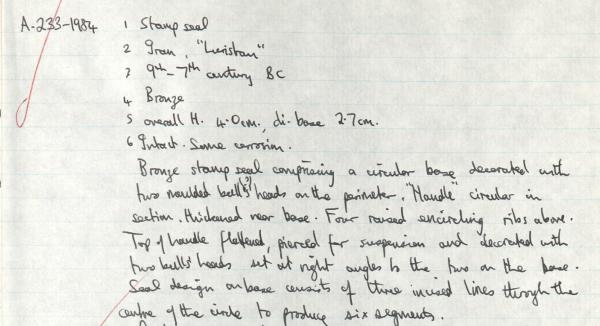 A-233-1984 1 Stamp seal
2 Iran, "Luristan"
3 9th-7th century BC
4 Bronze
5 overall H. 4.0cm, di. base 2.7cm.
6 Intact. Some corrosion.
Bronze stamp seal comprising a circular base decorated with
two moulded bulls'(?) heads on the perimeter. "Handle" circular in
section, thickened near base. Four raised encircling ribs above.
Top of handle flattened, pierced for suspension and decorated with
two bulls' heads set at right angles to the two on the base.
Seal design on base consists of three incised lines through the
centre of the circle to produce six segments.